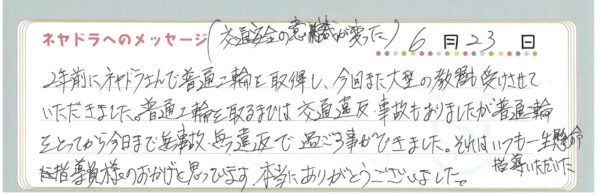 ネヤドラへのメッセージ(交通安全の意識が変った) 6月23日
2年前にネヤドラさんで普通二輪を取得し、今回また大型の教習も受けさせて
いただきました。普通二輪を取るまでは交通違反・事故もありましたが普通二輪
をとってから今日まで無事故・無違反で過ごる事ができました。それはいつも一生懸命
指導いただいた
指導員様のおかげと思っています。本当にありがとうございました。